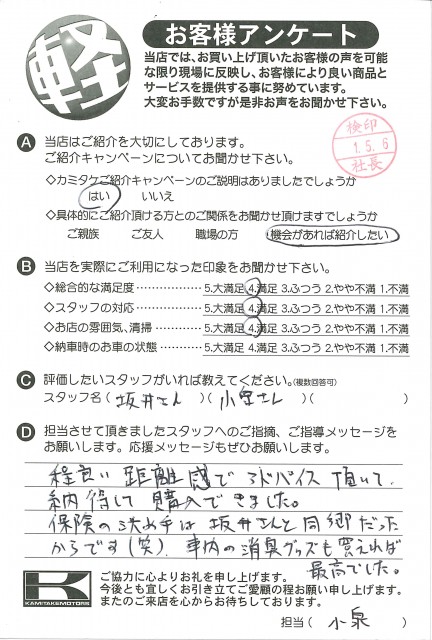 軽
お客様アンケート
当店では、お買い上げ頂いたお客様の声を可能
な限り現場に反映し、お客様により良い商品と
サービスを提供する事に努めています。
大変お手数ですが是非お声をお聞かせ下さい。
検印
1.5.6
社長
A 当店はご紹介を大切にしております。
ご紹介キャンペーンについてお聞かせ下さい。
◇カミタケご紹介キャンペーンのご説明はありましたでしょうか
はい いいえ
◇具体的にご紹介頂ける方とのご関係をお聞かせ頂けますでしょうか
ご親族 ご友人 職場の方 機会があれば紹介したい
B 当店を実際にご利用になった印象をお聞かせ下さい。
◇総合的な満足度 ………… 5.大満足 4.満足 3.ふつう 2.やや不満 1.不満
◇スタッフの対応 ………… 5.大満足 4.満足 3.ふつう 2.やや不満 1.不満
◇お店の雰囲気、清掃 ……… 5.大満足 4.満足 3.ふつう 2.やや不満 1.不満
◇納車時のお車の状態 ……… 5.大満足 4.満足 3.ふつう 2.やや不満 1.不満
C 評価したいスタッフがいれば教えてください。(複数回答可)
スタッフ名 ( 坂井さん )( 小泉さん )( )
D 担当させて頂きましたスタッフへのご指摘、ご指導メッセージを
お願いします。応援メッセージもぜひお願いします。
程良い距離感でアドバイス頂いて、
納得して購入できました。
保険の決め手は坂井さんと同郷だった
からです(笑)。車内の消臭グッズも買えれば
最高でした。
K
KAMITAKEMOTORS
ご協力に心よりお礼を申し上げます。
今後とも宜しくお引き立てご愛顧の程お願い申し上げます。
またのご来店を心からお待ちしております。
担当 ( 小泉 )